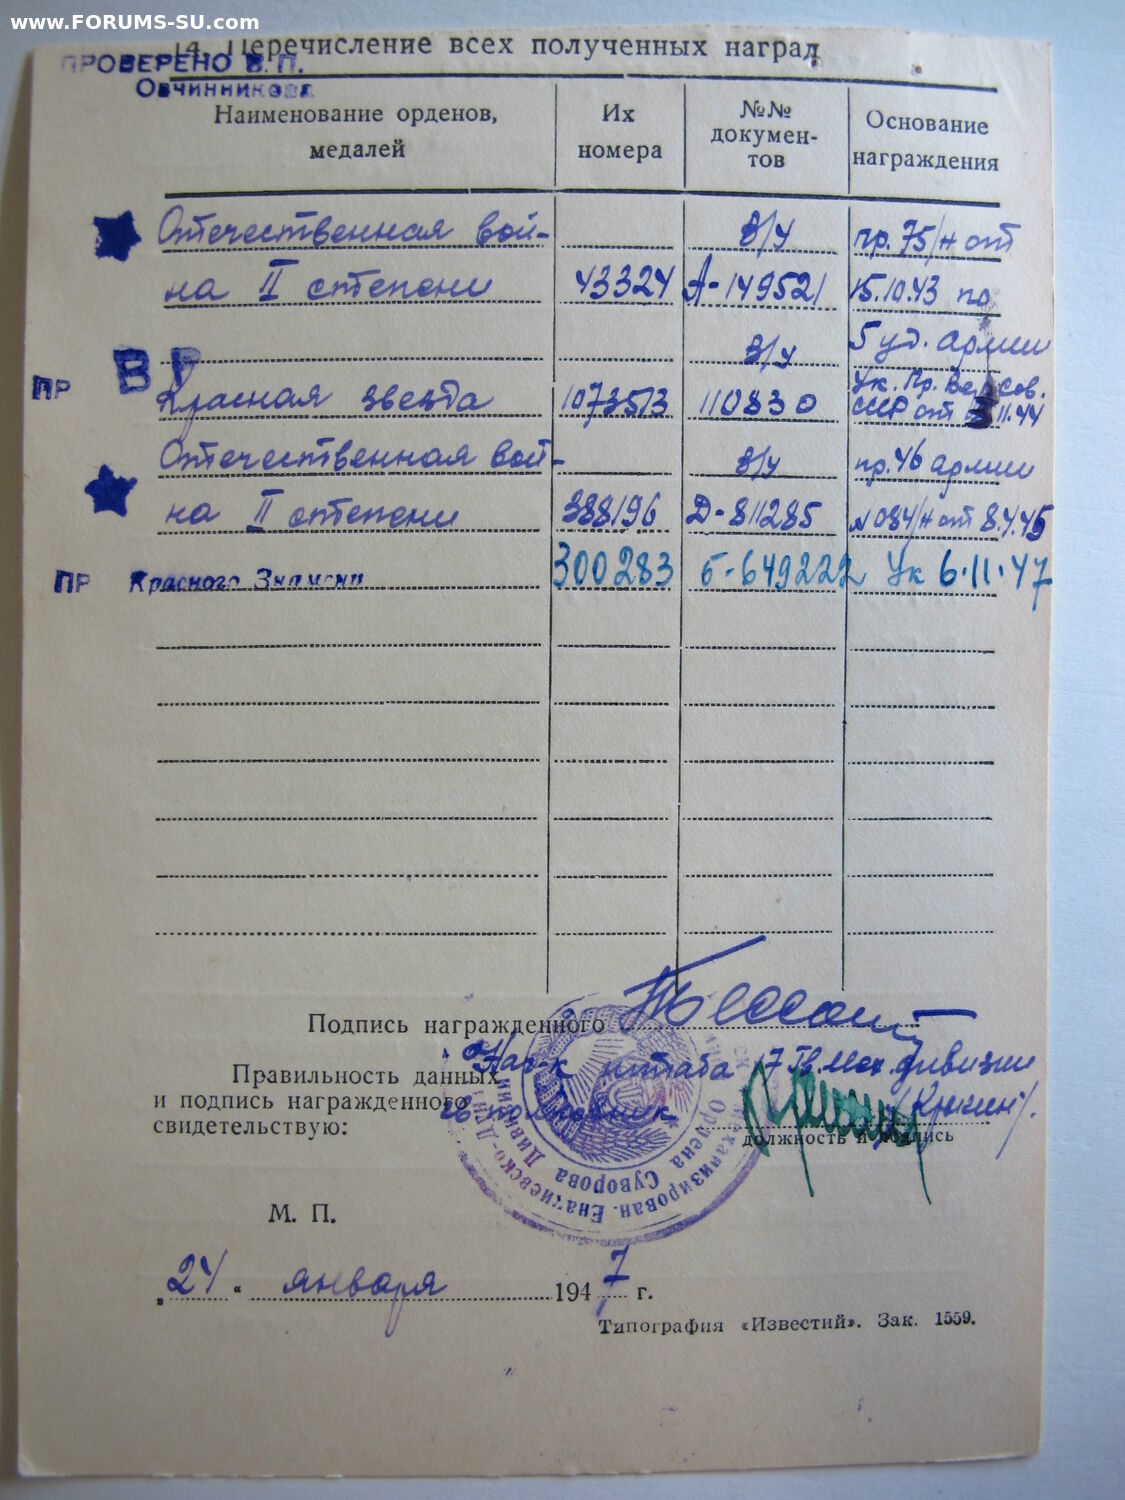 www.FORUMS-SU.com
14. Перечисление всех полученных наград
ПРОВЕРЕНО В. П.
Овчинникова
Наименование орденов, медалей
Их номера
№№ докумен-тов
Основание награждения
Отечественная вой- в/у пр. 75/н от
на II степени 43324 А-149521 15.10.43 по
в/у 5 уд. армии
ВР
ПР Красная звезда 1073513 110830 Ук. Пр. Вер. Сов.
СССР от 11.44
Отечественная вой- в/у пр. 46 армии
на II степени 388196 Д-811285 №084/н от 8.4.45
ПР Красного Знамени 300283 Б-649222 Ук 6.11.47
Подпись награжденного
Правильность данных
и подпись награжденного
свидетельствую:
Нач-к штаба 17 Гв. мех. дивизии
гв. полковник
должность и подпись
Механизирован. Енакиевско-
Ордена Суворова Дивизии
М. П.
„24“ января 1947 г.
Типография «Известий». Зак. 1559.